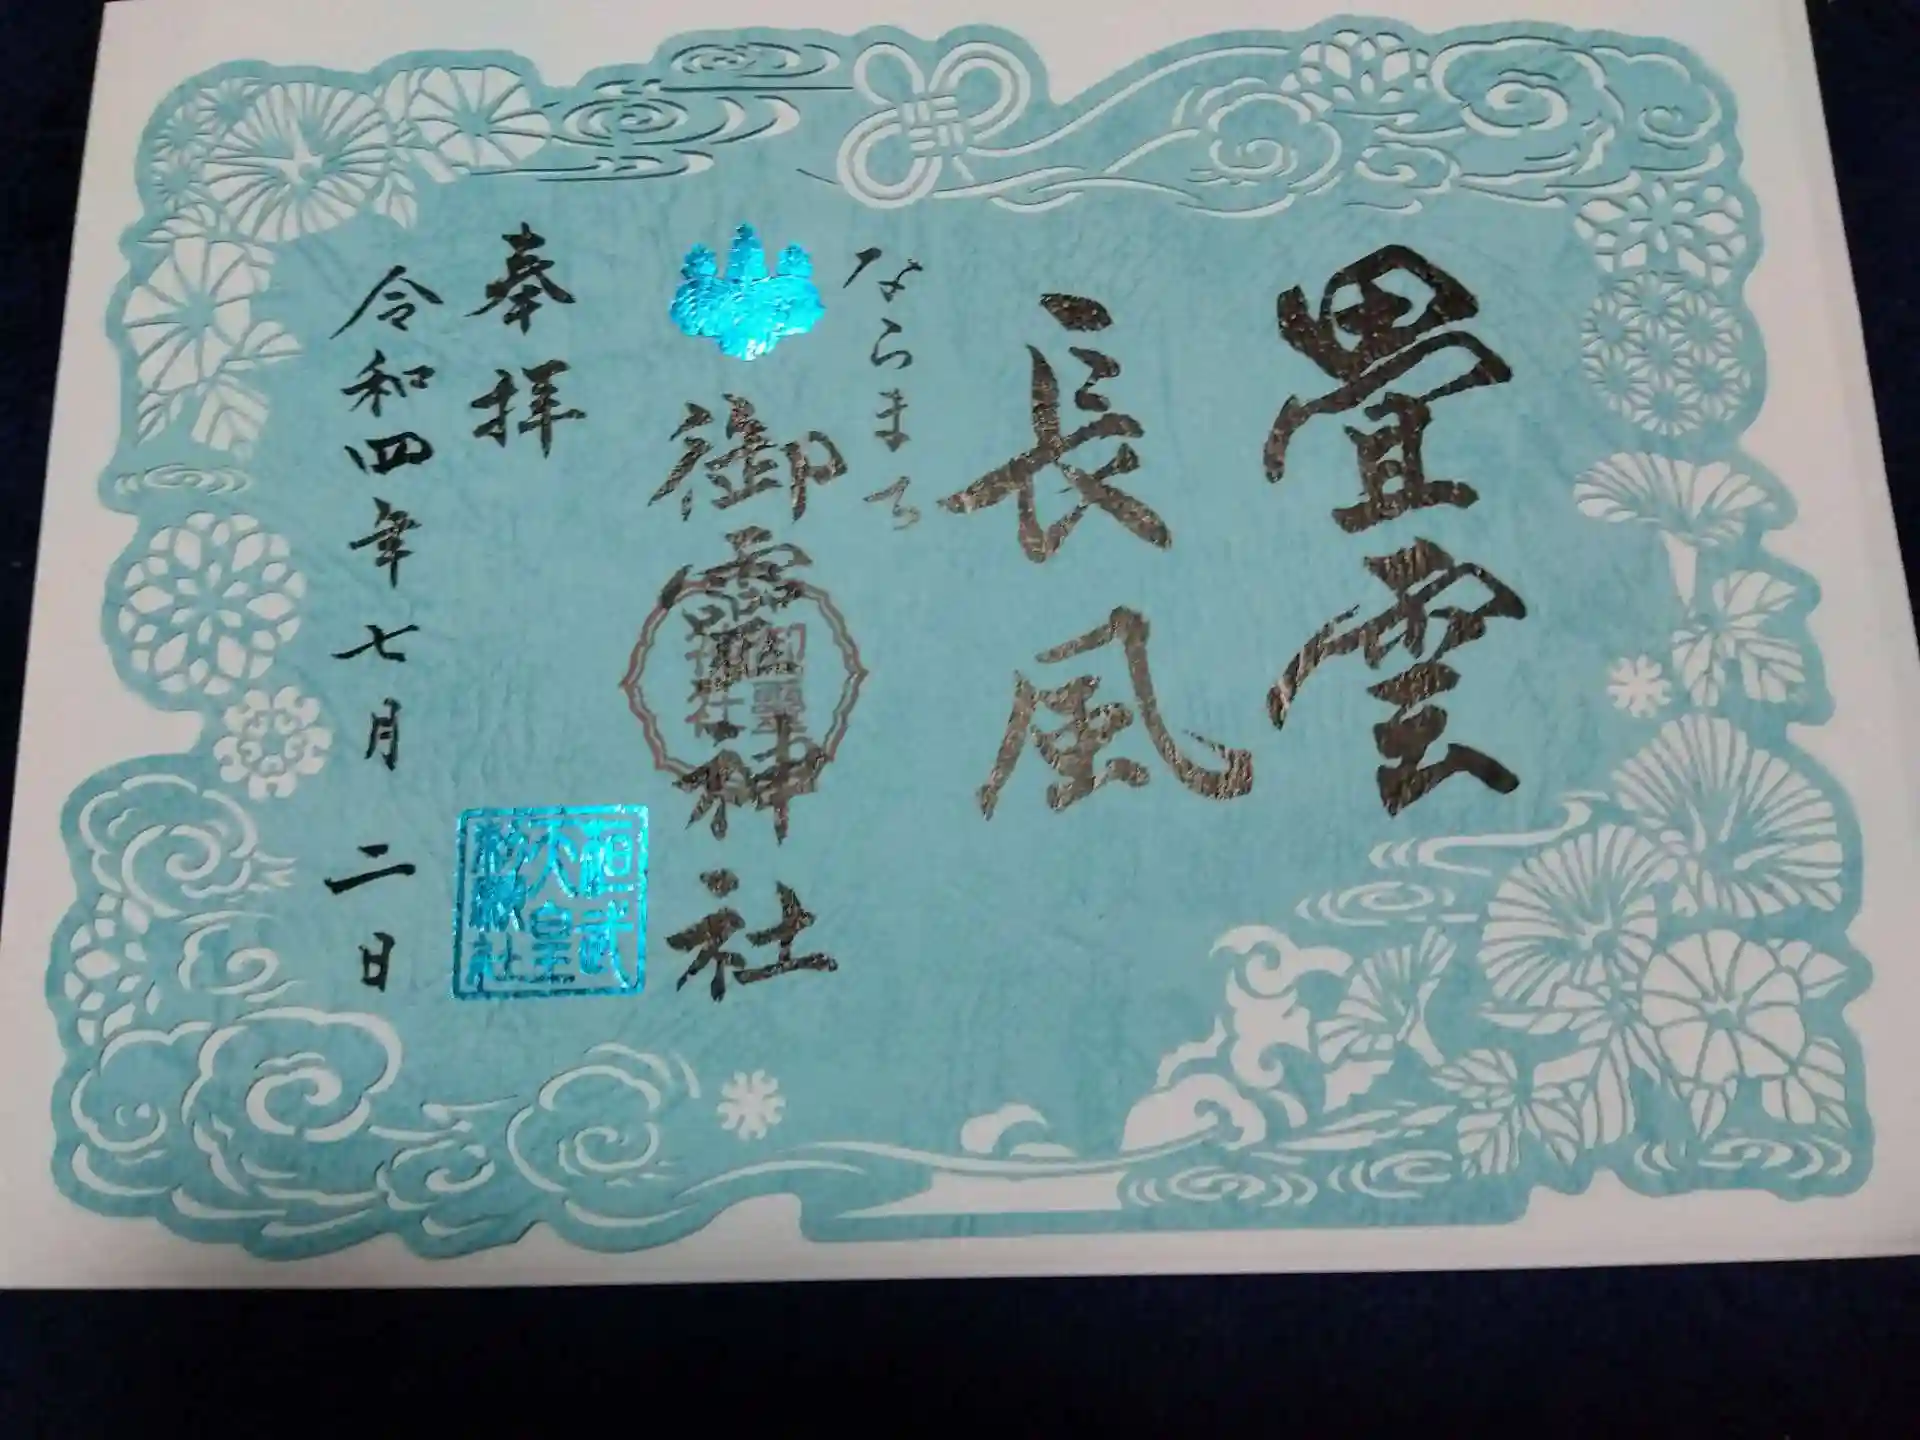 畳雲
長風
ならまち
御霊神社
御霊
神社
奉拝
桓武
天皇
勅社
令和四年七月二日